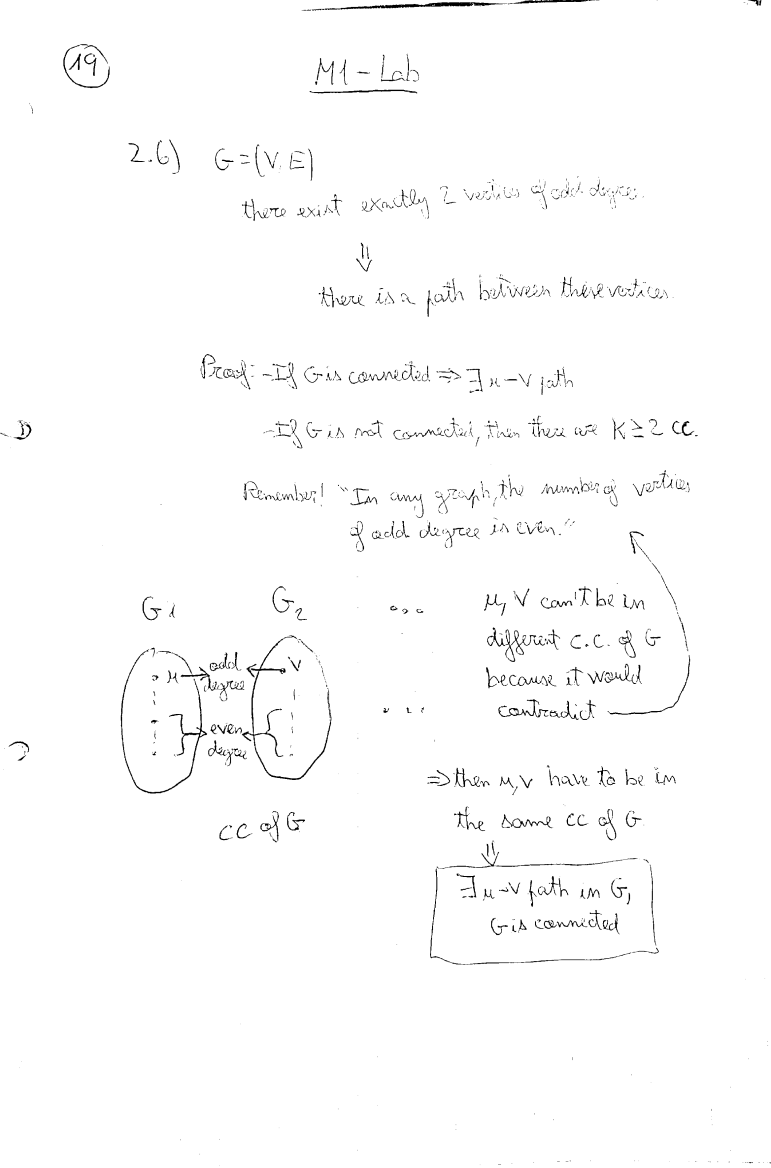 19
M1 - Lab
2.6) G=(V, E)
there exist exactly 2 vertices of odd degree.
⇓
there is a path between these vertices.
Proof: - If G is connected ⇒ ∃ u-v path
- If G is not connected, then there are K ≥ 2 cc.
Remember! "In any graph, the number of vertices
of odd degree is even."
G1 G2 ...
u odd degree v
even degree
...
cc of G
u, v can't be in
different c.c. of G
because it would
contradict
⇒ then u, v have to be in
the same cc of G
⇓
∃ u-v path in G,
G is connected